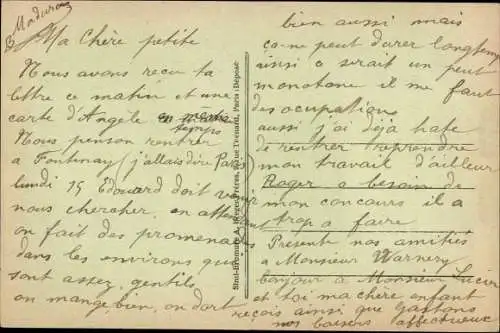 Ma chère petite
Nous avons reçu ta
lettre ce matin et une
carte d'Angèle en même
temps
Nous penson rentrer
a Fontenay (j'allais dire Paris)
lundi 15 Edouard doit venir
nous chercher, en attendant
on fait des promenades
dans les environs qui
sont assez gentils
on mange bien, on dort
bien aussi mais
ça ne peut durer longtemps
ainsi ce serait un peut
monotone il me faut
des occupations
aussi j'ai déjà hate
de rentrer reprendre
mon travail d'ailleur
Roger a besoin de
mon concours il a
trop a faire
Présente nos amitiés
a Monsieur Warnery
bonjour a Monsieur
et toi ma chère enfant
reçois ainsi que Gastons
nos baisers affectueux